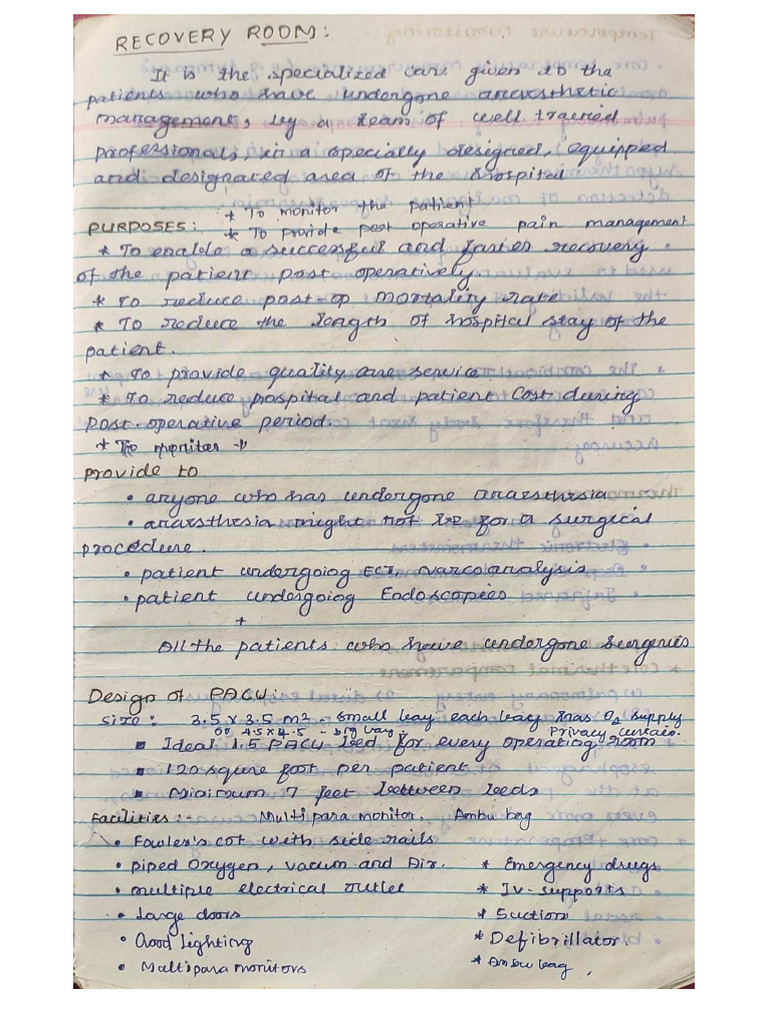 RECOVERY ROOM:
It is the specialized care given to the
patients who have undergone anaesthetic
management, by a team of well trained
professionals, in a specially designed, equipped
and designated area of the hospital
* To monitor the patient
PURPOSES: * To provide post operative pain management
* To enable a successful and faster recovery
of the patient post operatively.
* To reduce post-op mortality rate
* To reduce the length of hospital stay of the
patient.
* To provide quality care service
* To reduce hospital and patient cost during
post-operative period.
* To moniter
Provide to
• anyone who has undergone anaesthesia
• anaesthesia might not be for a surgical
procedure.
• patient undergoing ECT, narcoanalysis
• patient undergoing Endoscopies
+
All the patients who have undergone surgeries
Design of PACU:
Size: 3.5 x 3.5 m² small bay each bay has O2 supply
or 4.5 x 4.5 - big bay. Privacy curtain.
▪ Ideal 1.5 PACU bed for every operating room
▪ 120 squre foot per patient
▪ Minimum 7 feet between beds
Facilities :- Multipara monitor, Ambu bag
• Fowler's cot with side rails
• piped Oxygen, vacum and Air. * Emergency drugs
• multiple electrical outlet * IV-supports
• Large doors * Suction
• Good lighting * Defibrillator.
• Multipara monitors * Ambu bag,